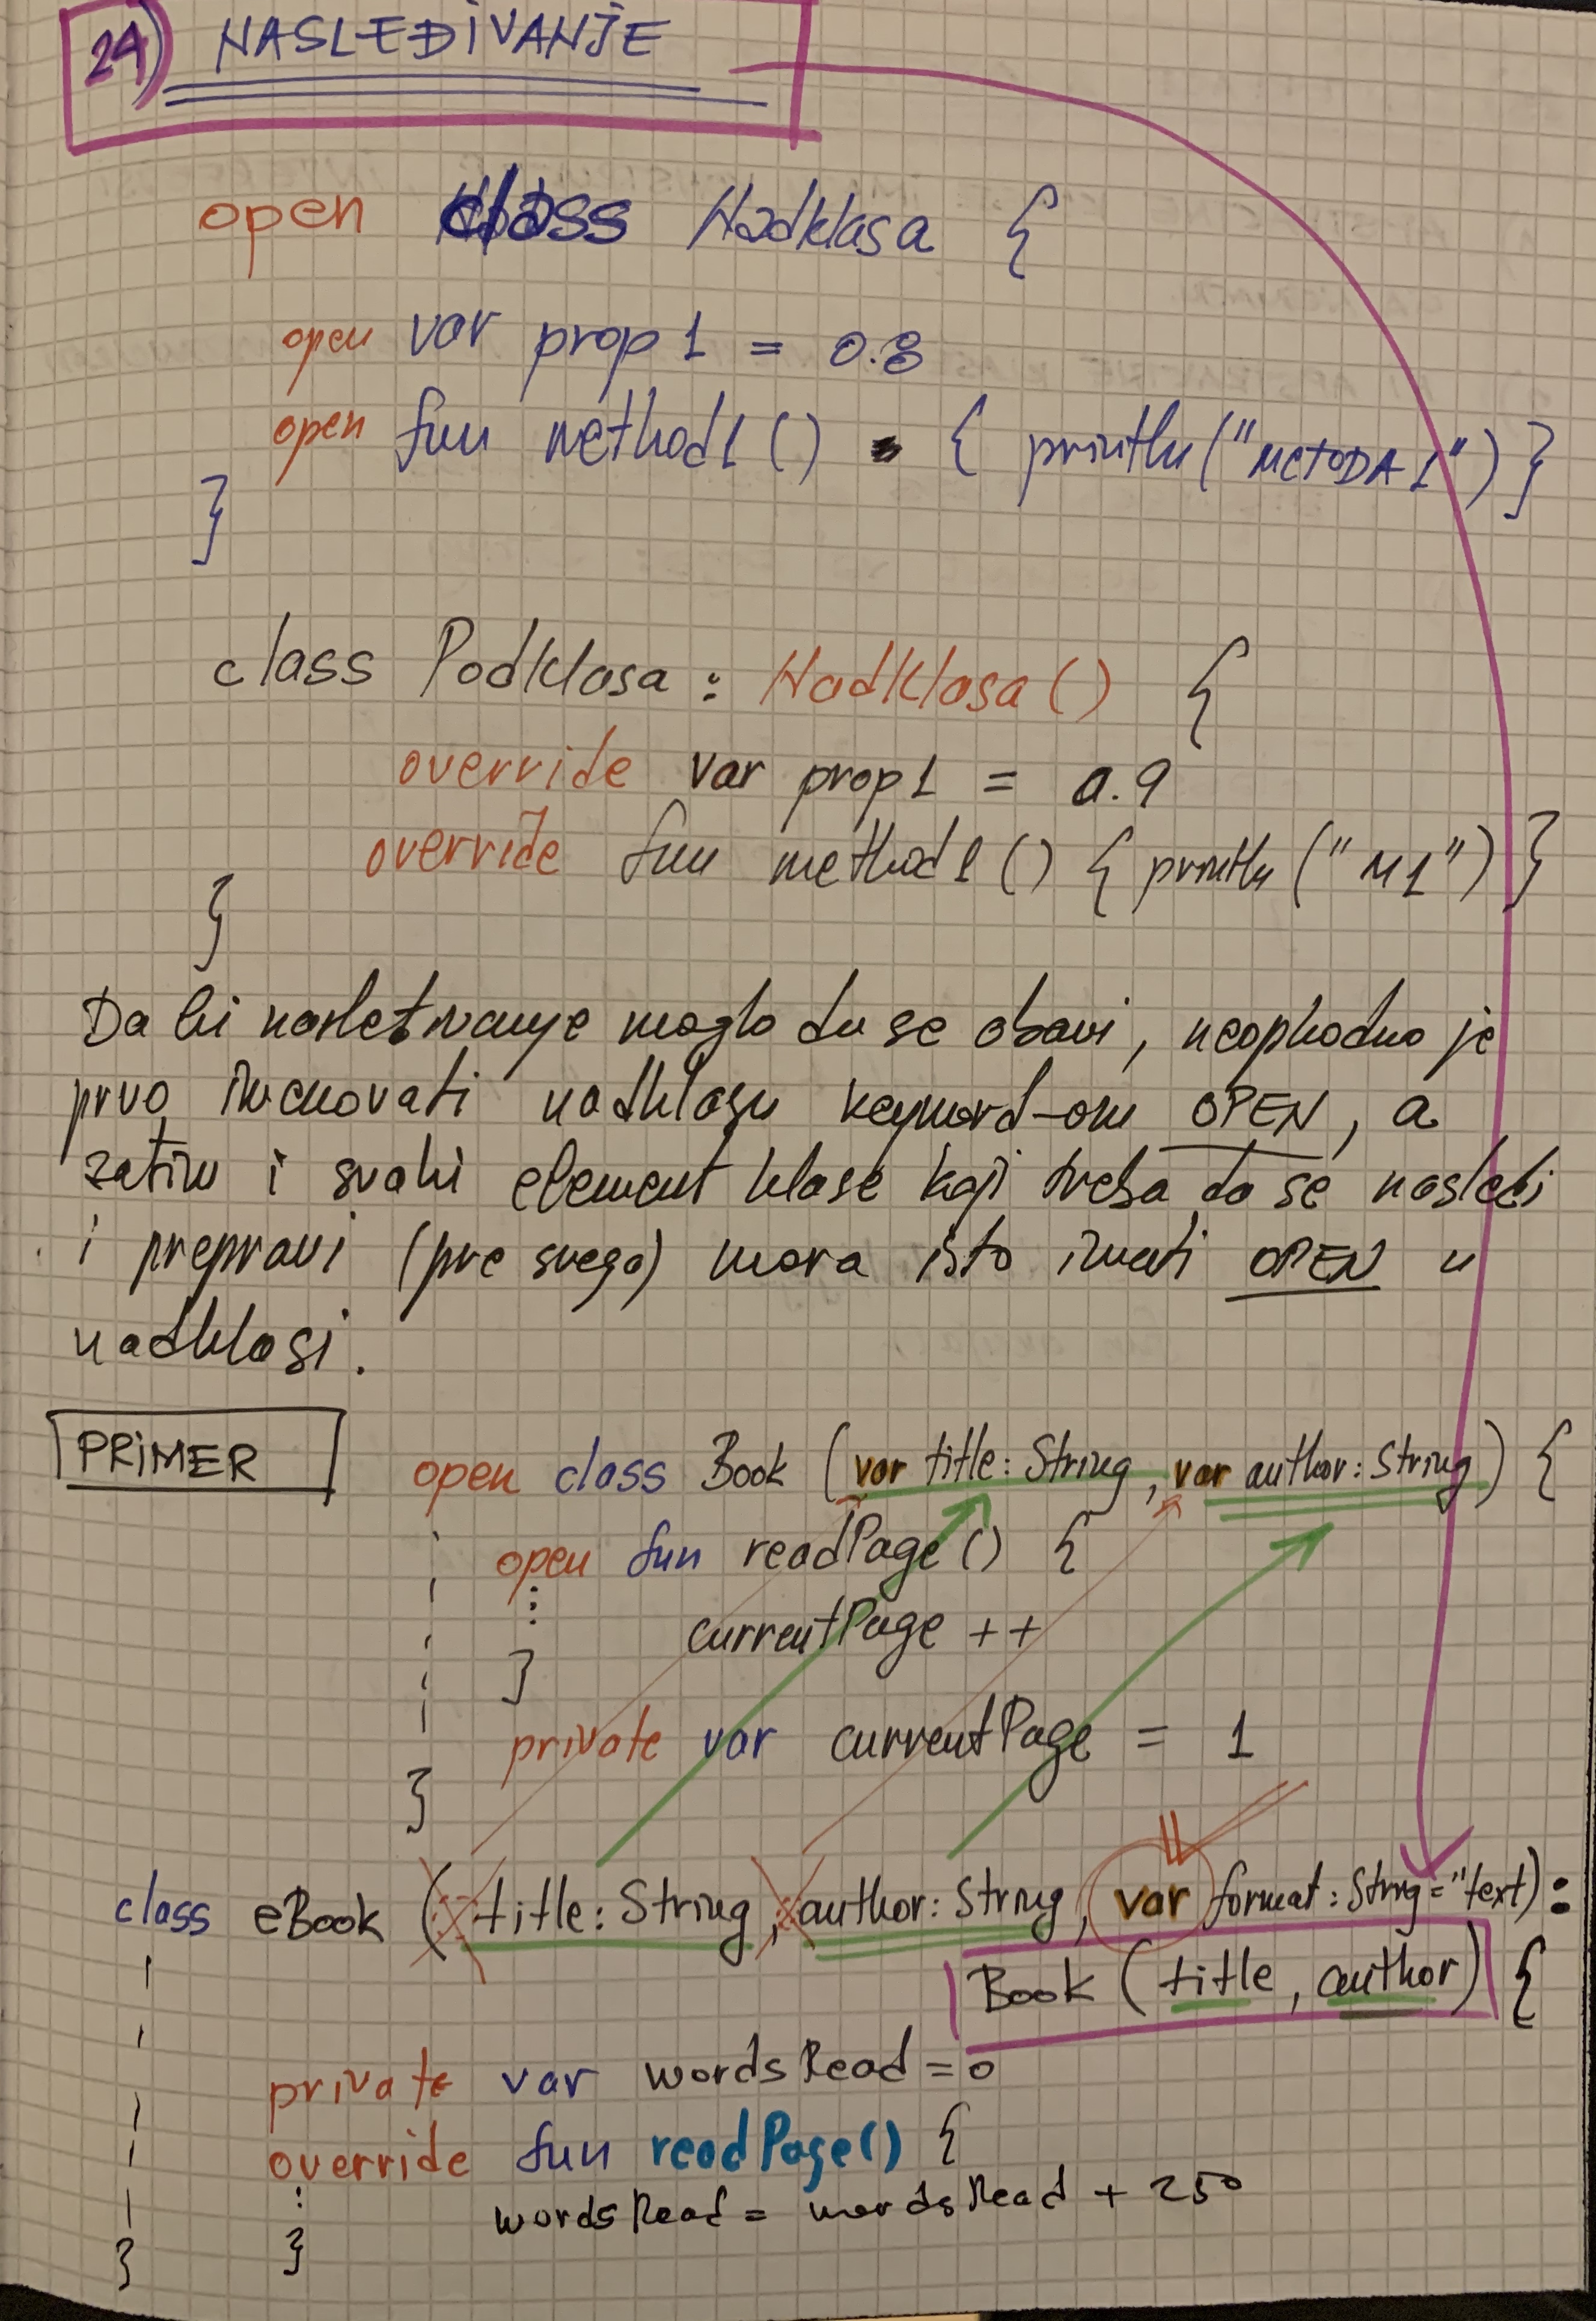 24) NASLEĐIVANJE
open class Nadklasa {
open var prop1 = 0.8
open fun method1() { println("METODA1") }
}
class Podklasa : NadKlasa() {
override var prop1 = 0.9
override fun method1() { println("M1") }
}
Da bi nasleđivanje moglo da se obavi, neophodno je
prvo imenovati nadklasu keyword-om OPEN, a
zatim i svaki element klase koji treba da se nasledi
i prepravi (pre svega) mora isto imati OPEN u
nadklasi.
PRIMER
open class Book (var title: String, var author: String) {
open fun readPage() {
currentPage ++
}
private var currentPage = 1
}
class eBook (title: String, author: String, var format: String = "text) :
Book (title, author) {
private var wordsRead = 0
override fun readPage() {
wordsRead = wordsRead + 250
}
}